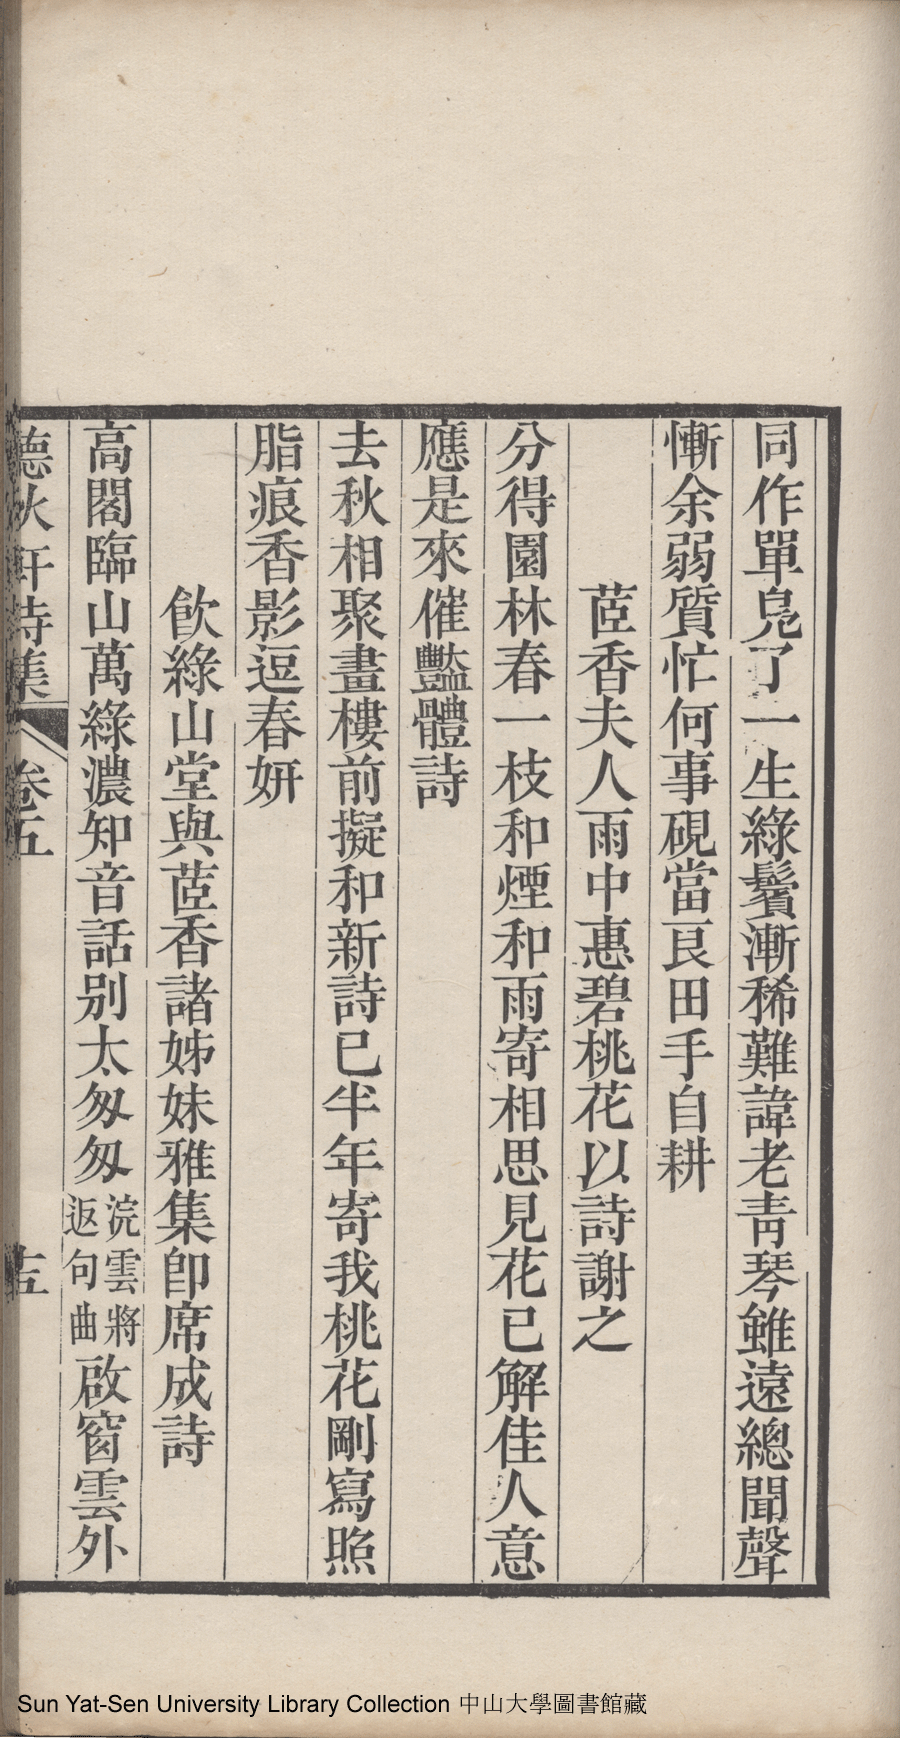 同作單鳧了一生綠鬢漸稀難諱老青琴雖遠總聞聲
慚余弱質忙何事硯當良田手自耕
茝香夫人雨中惠碧桃花以詩謝之
分得園林春一枝和煙和雨寄相思見花已解佳人意
應是來催豔體詩
去秋相聚畫樓前擬和新詩已半年寄我桃花剛寫照
脂痕香影逗春妍
飲綠山堂與茝香諸姊妹雅集卽席成詩
高閣臨山萬綠濃知音話別太匆匆浣雲將返句曲啟窗雲外
德秋軒詩集 卷五 十五
Sun Yat-Sen University Library Collection 中山大學圖書館藏